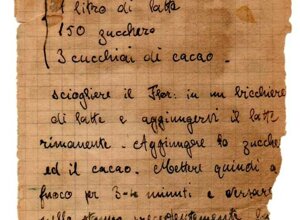 1 litro di latte
150 zucchero
3 cucchiai di cacao.
sciogliere il Flor: in un bicchiere
di latte e aggiungervi il latte
rimanente. Aggiungere lo zucche
ed il cacao. Mettere quindi a
fuoco per 3-4 minuti e versare
nello stampo precedentemente